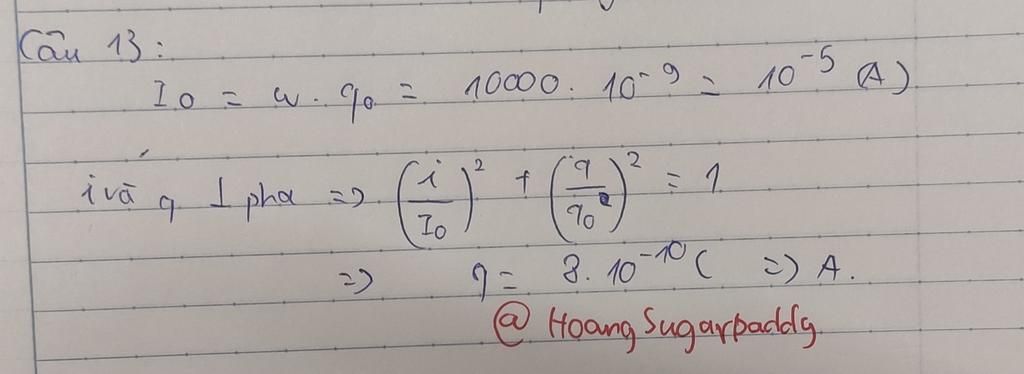 Câu 13:
I₀ = ω . q₀ = 10000 . 10⁻⁹ = 10⁻⁵ (A)
i và q ⊥ pha => (i/I₀)² + (q/q₀)² = 1
=> q = 8. 10⁻¹⁰ C => A.
@ HoangSugarpaddy